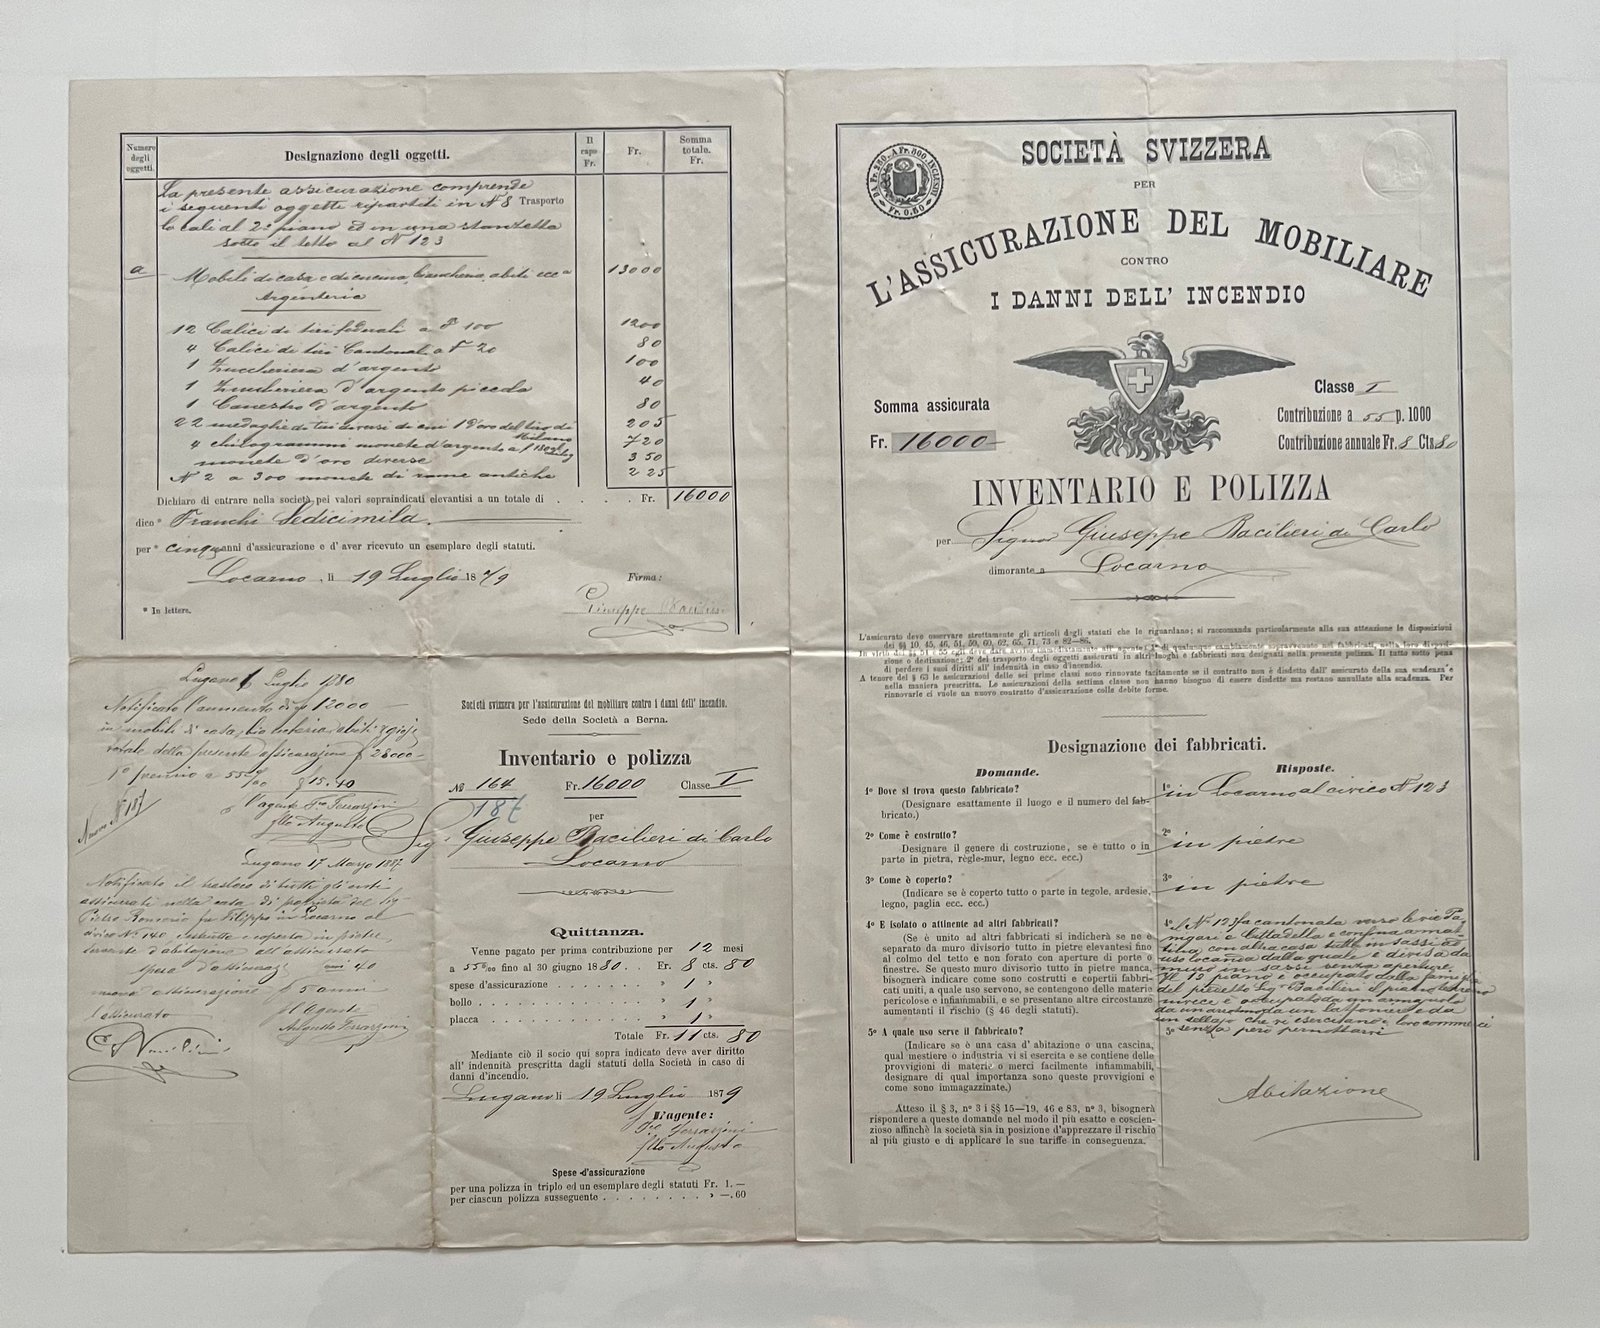 Numero degli oggetti.
Designazione degli oggetti.
Il capo Fr.
Fr.
Somma totale. Fr.
La presente assicurazione comprende
i seguenti oggetti ripartiti in N 8 Trasporto
locali al 2º piano ed in una stanzetta
sotto il tetto al Nº 123
a Mobili di casa e di cucina, biancheria, abiti ecc 13000
Argenteria
12 Calici di tiri federali a F 100 1200
4 Calici di tiri Cantonali a F 20 80
1 Zuccheriera d'argento 100
1 Zuccheriera d'argento piccola 40
1 Canestro d'argento 80
22 medaglie di tiri diversi di cui 1 d'oro del tiro di Milano 205
4 chilogrammi monete d'argento a f 180 720
monete d'oro diverse 350
N 2 a 300 monete di rame antiche 225
Dichiaro di entrare nella società pei valori sopraindicati elevantisi a un totale di . . . . Fr. 16000
dico* Franchi Sedicimila.
per* cinque anni d'assicurazione e d' aver ricevuto un esemplare degli statuti.
Locarno, li 19 Luglio 1879 Firma:
* In lettere.
Giuseppe Bacilieri
Lugano 1 Luglio 1880
Notificato l'aumento di f 12000
in mobili di casa, biancheria, abiti e gioje
totale della presente assicurazione f 28000
1º premio a 55 º/oo f 15.40
L'agente
Augusto
Nuovo Nº 187
Lugano 17 Marzo 1887
Notificato il trasloco di tutti gli enti
assicurati nella casa di proprietà del Sigr
Pietro Romerio fu Filippo in Locarno al
civico Nº 140 costrutta e coperta in pietre,
servente d'abitazione all'assicurato
spese d'assicuraz 40
nuova assicurazione f 5 anni
l'assicurato L'Agente
Società svizzera per l'assicurazione del mobiliare contro i danni dell' incendio.
Sede della Società a Berna.
Inventario e polizza
Nº 164 Fr. 16000 Classe I
187
per
Sig. Giuseppe Bacilieri di Carlo
Locarno
Quittanza.
Venne pagato per prima contribuzione per 12 mesi
a 55 º/oo fino al 30 giugno 1880 . . Fr. 8 cts. 80
spese d'assicurazione . . . . . . . . " 1 "
bollo . . . . . . . . " 1 "
placca . . . . . . . . " 1 "
Totale Fr. 11 cts. 80
Mediante ciò il socio qui sopra indicato deve aver diritto
all' indennità prescritta dagli statuti della Società in caso di
danni d'incendio.
Lugano li 19 Luglio 1879
L'agente:
Augusto
Spese d'assicurazione
per una polizza in triplo ed un esemplare degli statuti Fr. 1. —
per ciascun polizza susseguente . . . . . . . . " —. 60
DA Fr. 250. A Fr. 500. INCLUSIVI
Fr. 0.50
SOCIETÀ SVIZZERA
PER
L'ASSICURAZIONE DEL MOBILIARE
CONTRO
I DANNI DELL' INCENDIO
Somma assicurata
Fr. 16000
Classe I
Contribuzione a 55 p. 1000
Contribuzione annuale Fr. 8 Cts 80
INVENTARIO E POLIZZA
per Signor Giuseppe Bacilieri di Carlo
dimorante a Locarno
L'assicurato deve osservare strettamente gli articoli degli statuti che lo riguardano; si raccomanda particolarmente alla sua attenzione le disposizioni
dei §§ 10, 45, 46, 51, 59, 60, 62, 65, 71, 73 e 82—86.
zione o destinazione; 2º del trasporto degli oggetti assicurati in altri luoghi e fabbricati non designati nella presente polizza. Il tutto sotto pena
di perdere i suoi diritti all' indennità in caso d'incendio.
A tenore del § 63 le assicurazioni delle sei prime classi sono rinnovate tacitamente se il contratto non è disdetto dall' assicurato della sua scadenza e
nella maniera prescritta. Le assicurazioni della settima classe non hanno bisogno di essere disdette ma restano annullate alla scadenza. Per
rinnovarle ci vuole un nuovo contratto d'assicurazione colle debite forme.
Designazione dei fabbricati.
Domande.
Risposte.
1º Dove si trova questo fabbricato?
(Designare esattamente il luogo e il numero del fabbricato.)
1º in Locarno al civico Nº 123
2º Come è costrutto?
Designare il genere di costruzione, se è tutto o in
parte in pietra, règle-mur, legno ecc. ecc.)
2º in pietre
3º Come è coperto?
(Indicare se è coperto tutto o parte in tegole, ardesie,
legno, paglia ecc. ecc.)
3º in pietre
4º E isolato o attinente ad altri fabbricati?
(Se è unito ad altri fabbricati si indicherà se ne è
separato da muro divisorio tutto in pietre elevantesi fino
al colmo del tetto e non forato con aperture di porte o
finestre. Se questo muro divisorio tutto in pietre manca,
bisognerà indicare come sono costrutti e copertti fabbricati
uniti, a quale uso servono, se contengono delle materie
pericolose e infiammabili, e se presentano altre circostanze
aumentanti il rischio (§ 46 degli statuti).
4º Il Nº 123 fa cantonata verso le vie Pangari
e Cittadella e confina a mattina
con altra casa tutta in sassi ad
uso locanda dalla quale è divisa da
muro in sassi senza aperture.
Il 12 piano è occupato dalla famiglia
del predetto Sigr Bacilieri il piano terreno
invece è occupato da un armajuolo
da una modista da un lattoniere e da
un sellajo che vi esercitano i loro commerci
senza però pernottarvi
5º A quale uso serve il fabbricato?
(Indicare se è una casa d' abitazione o una cascina,
qual mestiere o industria vi si esercita e se contiene delle
provvigioni di materie o merci facilmente infiammabili,
designare di qual importanza sono queste provvigioni e
come sono immagazzinate.)
5º
Abitazione
Atteso il § 3, nº 3 i §§ 15—19, 46 e 83, nº 3, bisognerà
rispondere a queste domande nel modo il più esatto e coscienzioso
affinchè la società sia in posizione d'apprezzare il rischio
al più giusto e di applicare le sue tariffe in conseguenza.